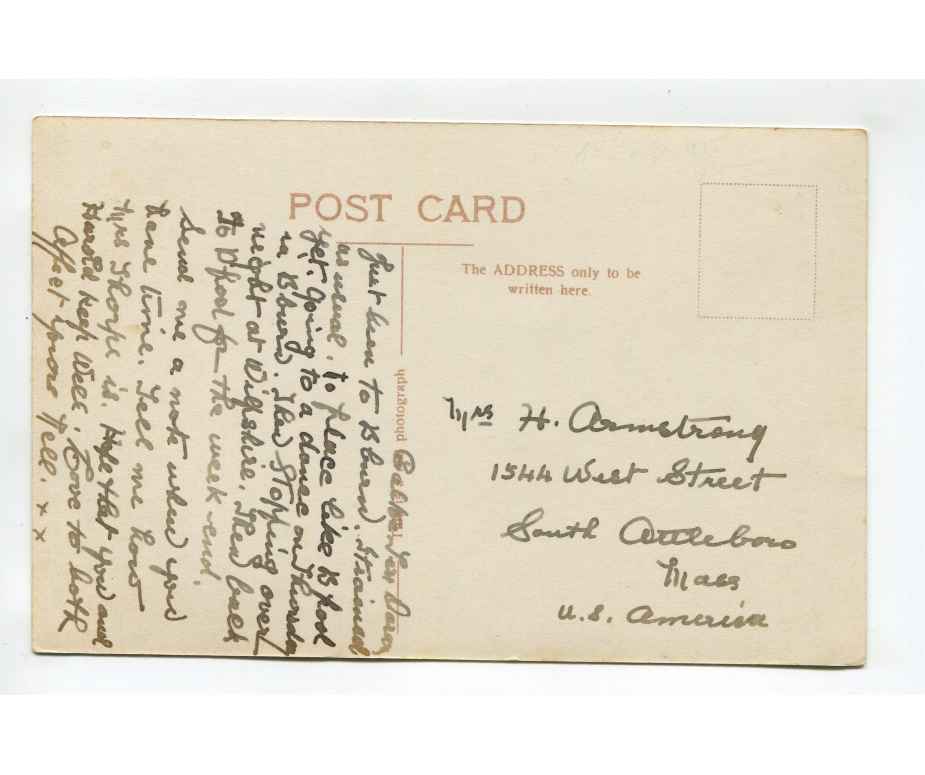 POST CARD
The ADDRESS only to be
written here.
photograph
Mrs H. Armstrong
1544 West Street
South Attleboro
Mass
U.S. America
Darwen
Just been to B'burn. Strained
as usual. No place like B'pool
yet. Going to a dance on Thursda
in B'burn. Then Stopping over
night at Wilpshire. Then back
to B'pool for the week-end.
Send me a note when you
have time. Tell me how
Mrs Thorpe is. Hope that you and
Harold keep Well. Love to both
Affect yours Nell. x x